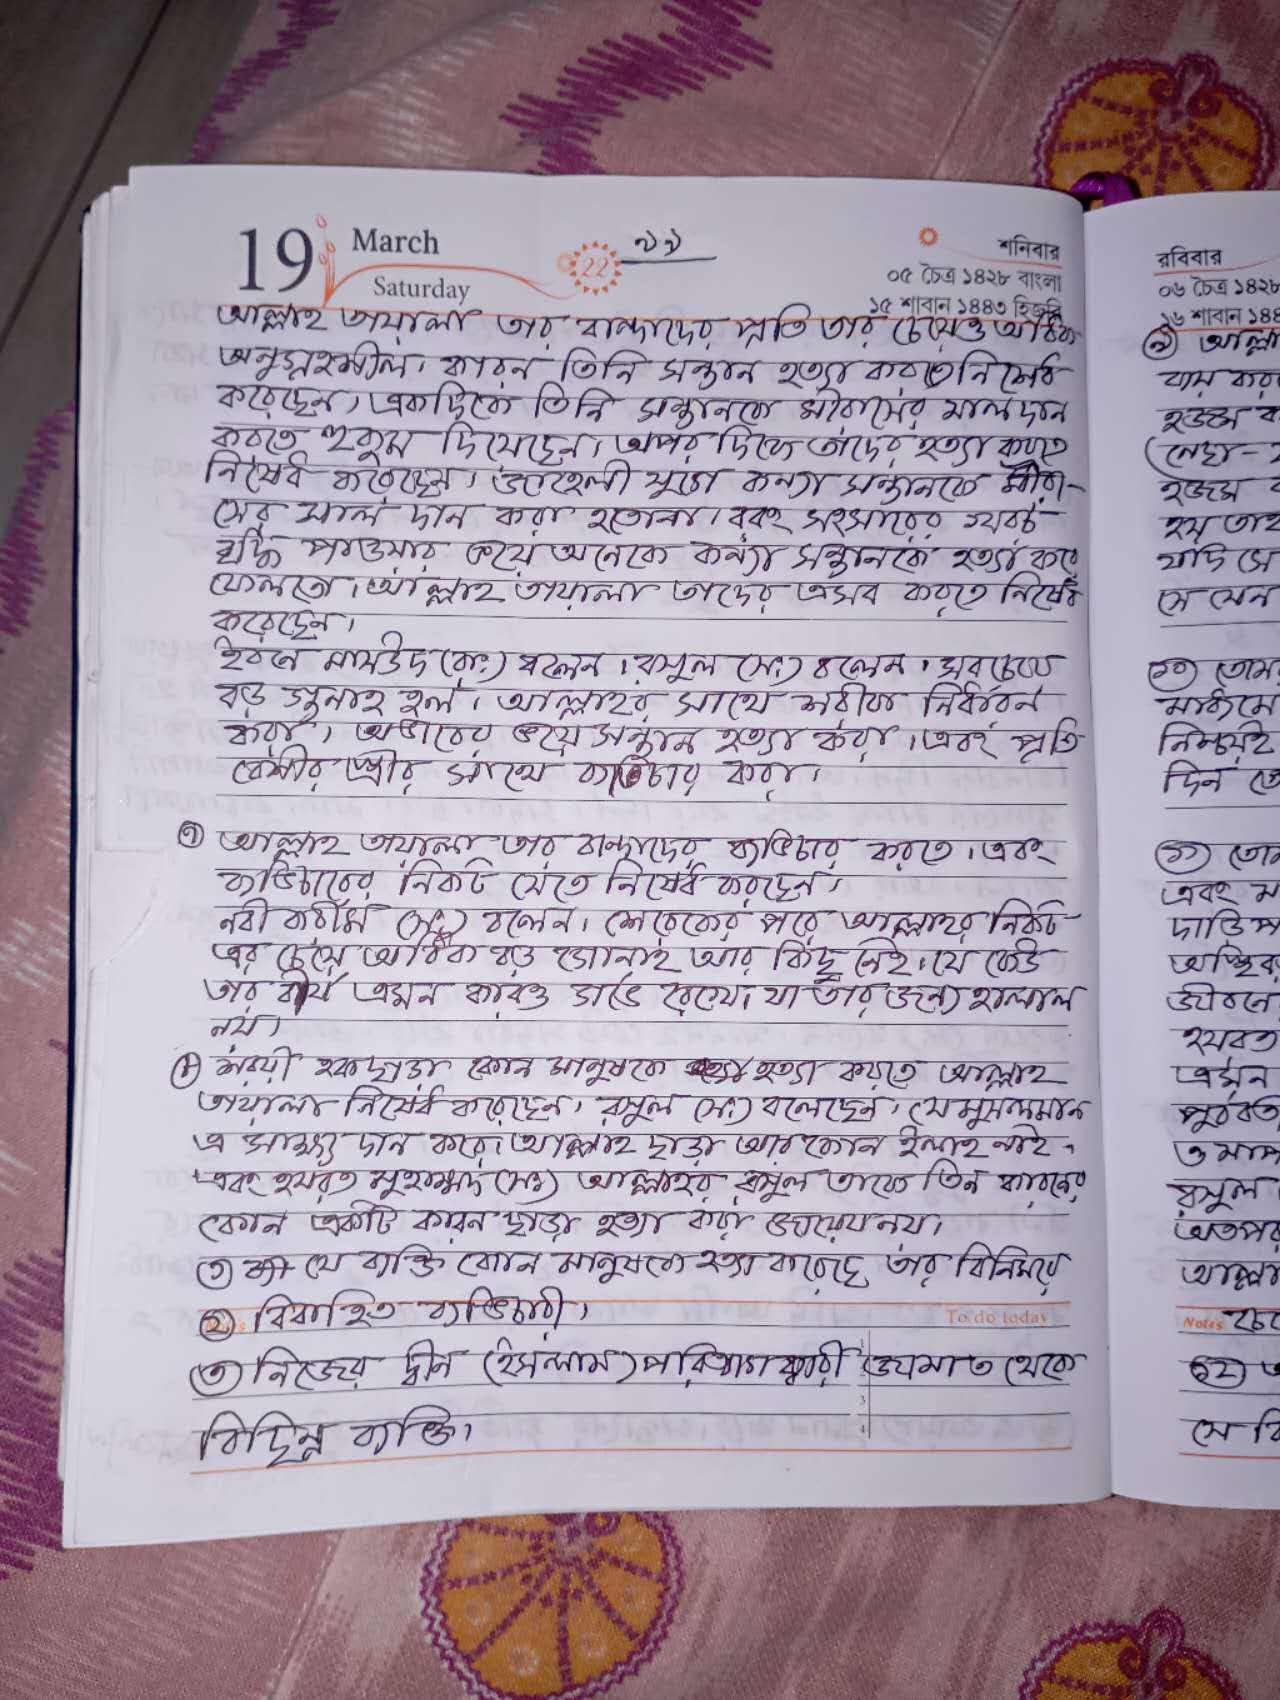 19 March
Saturday
22
৯৯
শনিবার
০৫ চৈত্র ১৪২৮ বাংলা
১৫ শাবান ১৪৪৩ হিজরি
আল্লাহ তায়ালা তার বান্দাদের প্রতি তার চেয়েও অধিক
অনুগ্রহশীল। কারন তিনি সন্তান হত্যা করতে নিষেধ
করেছেন। একদিকে তিনি সন্তানকে মীরাসের মাল দান
করতে হুকুম দিয়েছেন। অপর দিকে তাদের হত্যা করতে
নিষেধ করেছেন। জাহেলী যুগে কন্যা সন্তানকে মীরা-
সের মাল দান করা হতোনা। বরং সংসারের খরচ
বৃদ্ধি পাওয়ার ভয়ে অনেকে কন্যা সন্তানকে হত্যা করে
ফেলতো। আল্লাহ তায়ালা তাদের এসব করতে নিষেধ
করেছেন।
ইবনে মাসউদ (রাঃ) বলেন। রসুল (সঃ) বলেন। সবচেয়ে
বড় গুনাহ হল। আল্লাহর সাথে শরীক নির্ধারন
করা। অভাবের ভয়ে সন্তান হত্যা করা। এবং প্রতি
বেশীর স্ত্রীর সাথে ব্যভিচার করা।
৭ আল্লাহ তায়ালা তার বান্দাদের ব্যভিচার করতে। এবং
ব্যভিচারের নিকট যেতে নিষেধ করছেন।
নবী করীম (সঃ) বলেন। শেরেকের পরে আল্লাহর নিকট
এর চেয়ে অধিক বড় গোনাহ আর কিছু নেই। যে কেউ
তার বীর্য এমন কারও গর্ভে রেখে। যা তার জন্য হালাল
নয়।
৮ শরয়ী হক ছাড়া কোন মানুষকে হত্যা করতে আল্লাহ
তায়ালা নিষেধ করেছেন। রসুল (সঃ) বলেছেন। যে মুসলমান
এ সাক্ষ্য দান করে। আল্লাহ ছাড়া আর কোন ইলাহ নাই।
এবং হযরত মুহাম্মদ (সঃ) আল্লাহর রসুল তাকে তিন কারনের
কোন একটি কারন ছাড়া হত্যা করা জায়েয নয়।
১ যে ব্যক্তি কোন মানুষকে হত্যা করেছে তার বিনিময়ে
Notes ২ বিবাহিত ব্যভিচারী। To do today
৩ নিজের দ্বীন (ইসলাম) পরিত্যাগ কারী জামাত থেকে
বিছিন্ন ব্যক্তি।
রবিবার
০৬ চৈত্র ১৪২৮
১৬ শাবান ১৪৪
৯ আল্লা
হজম
যাদি সে
সে যেন
১০ তোমা
মাধ্যমে
নিশ্চয়ই
দিন
১১
এবং ম
জীবনে
হযরত
এমন
পূর্ববর্তী
রসুল
অতপর
আল্লা
Notes
১২
সে বি